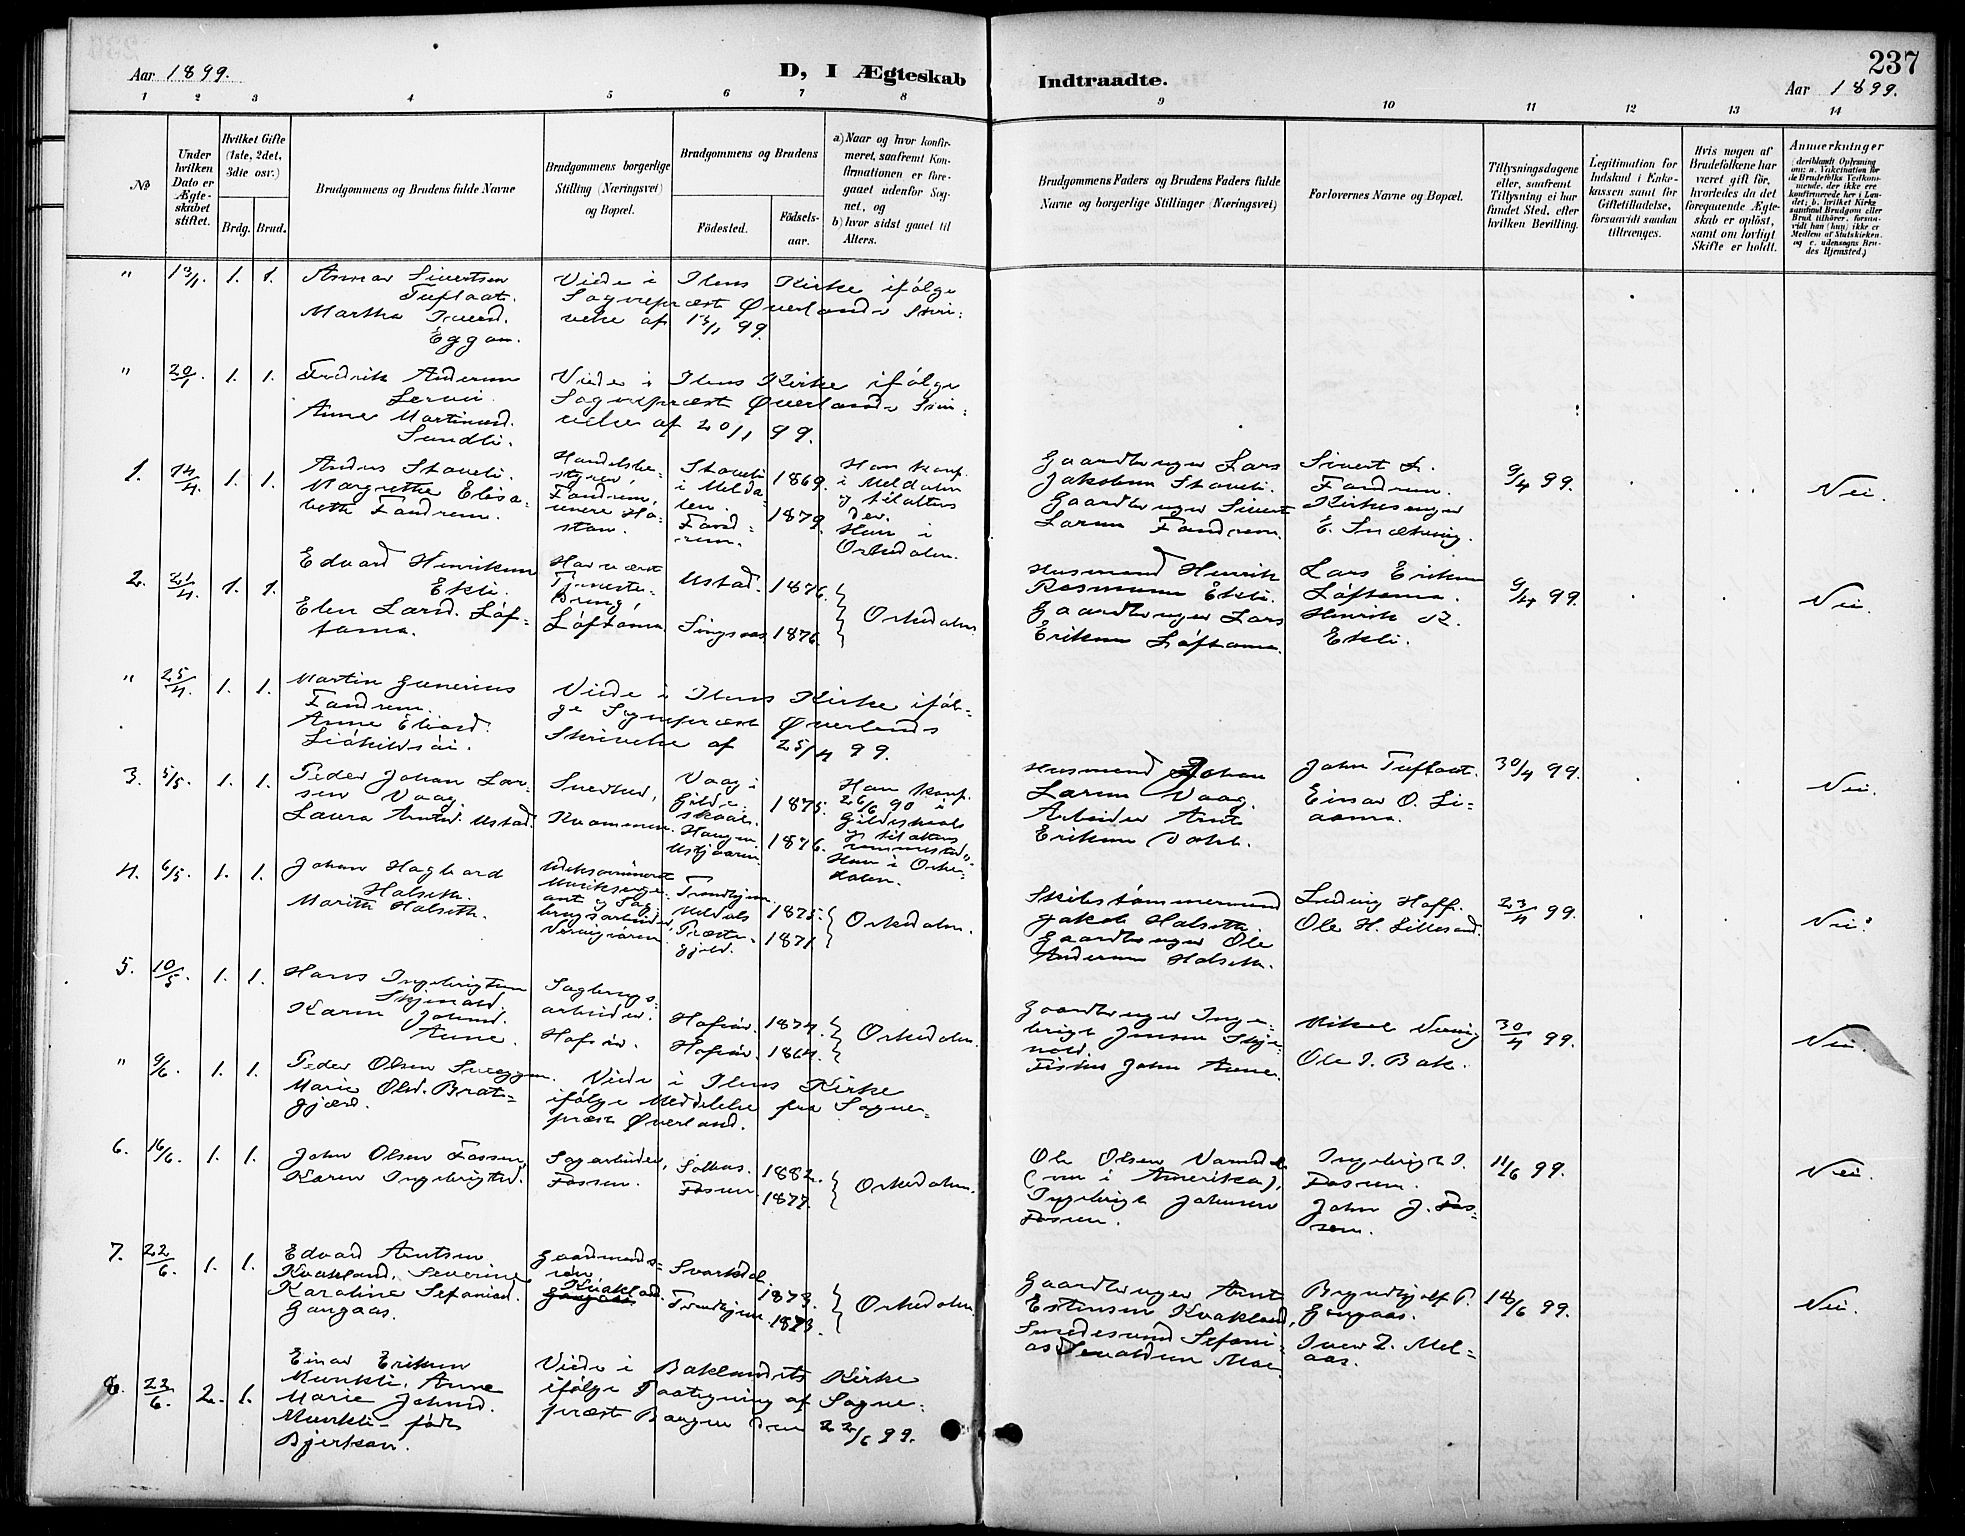 237
Aar 1899.
D, I Ægteskab
Indtraadte.
Aar 1899.
1 2 3 4 5 6 7 8
9 10 11 12 13 14
No
Under
hvilken
Dato er
Ægte-
skabet
stiftet.
Hvilket Gifte
(1ste, 2det,
3die osv.)
Brdg. Brud.
Brudgommens og Brudens fulde Navne
Brudgommens borgerlige
Stilling (Næringsvei)
og Bopæl.
Brudgommens og Brudens
Fødested.
Fødsels-
aar.
a) Naar og hvor konfir-
meret, saafremt Kon-
firmationen er fore-
gaaet udenfor Sog-
net, og
b) hvor sidst gaaet til
Alters.
Brudgommens Faders og Brudens Faders fulde
Navne og borgerlige Stillinger (Næringsvei)
Forlovernes Navne og Bopæl.
Tillysningsdagene
eller, saafremt
Tillysning ei har
fundet Sted, efter
hvilken Bevilling.
Legitimation for
Indskud i Enke-
kassen samt for
Giftetilladelse,
forsaavidt saadan
tiltrænges.
Hvis nogen af
Brudefolkene har
været gift før,
hvorledes da det
foregaaende Ægte-
skab er opløst,
samt om lovligt
Skifte er holdt.
Anmærkninger
(deriblandt Oplysning
om: a. Vakcination for
de Brudefolks Vedkom-
mende, der ikke ere
konfirmerede her i Lan-
det; b. hvilket Kirke-
samfund Brudgom eller
Brud tilhører, forsaa-
vidt han (hun) ikke er
Medlem af Statskirken,
og c. udensogns Bru-
des Hjemsted.)
" 13/1 1. 1.
Sivertsen
Tuflaat.
Martha
Eggan.
Viede i Ilens Kirke ifølge
Sognepræst Øverlands Skri-
velse af 13/1 99.
" 20/1. 1. 1.
Fredrik Andersen
Anne Martinusd.
Sundli.
Viede i Ilens Kirke ifølge
Sognepræst Øverlands Skri-
velse af 20/1 99.
1. 14/4. 1. 1.
Anders Stoveli.
Margrethe Elisa-
beth Fandrem.
Handelsbe-
styrer,
Fandrem,
Stoveli
i Melda-
len.
Fand-
rem.
1869.
1879.
Han konf.
i Meldalen
og til alters
der.
Hun i
Orkedalen.
Gaardbruger Lars
Jakobsen Stoveli.
Gaardbruger Sivert
Larsen Fandrem.
Sivert L.
Fandrem.
Kirkesanger
E. Snætung.
9/4 99.
Nei.
2. 21/4. 1. 1.
Edvard Henriksen
Ekli.
Elen Larsd. Løf-
tama.
Tjeneste-
Løftama
Ustad.
Singsaas
1876.
1876.
Orkedalen.
Husmand Henrik
Rasmussen Ekli.
Gaardbruger Lars
Eriksen Løftama.
Lars Eriksen
Løftama.
Henrik R.
Ekli.
9/4 99.
Nei.
" 25/4. 1. 1.
Martin Gunerius
Fandrem.
Anne
Viede i Ilens Kirke iføl-
ge Sognepræst Øverlands
Skrivelse af 25/4 99.
3. 5/5. 1. 1.
Peder Johan Lar-
sen Vaag.
Laura Arntsd. Ustad.
Snedker,
Kvammen.
Vaag i
Gilde-
skaal.
Haugen
Ustjaaren
1875.
1876.
Han konf.
26/6 90 i
Gildeskaal
og til alters
sammesteds.
Hun i Orke-
dalen.
Husmand Johan
Larsen Vaag.
Arbeider Arnt
Eriksen Dahl.
John Tuflaat.
Einar O. Li-
aama.
30/4 99.
Nei.
4. 6/5. 1. 1.
Johan Hagbard
Halseth.
Marith Halseth.
Udeksamineret
og Sag-
brugsarbeider,
Trondhjem.
Meldals
Præste-
gjeld.
1875.
1871.
Orkedalen.
Skibstømmermand
Jakob Halseth.
Gaardbruger Ole
Andersen Halseth.
Ludvig Hoff.
Ole H. Lillesand.
23/4 99.
Nei.
5. 10/5. 1. 1.
Hans Ingebrigtsen
Skjenald.
Karen Johnsd.
Aune.
Sagbrugs-
arbeider.
Hofsøn.
Hofsøn.
Hofsøn.
1874.
1864.
Orkedalen.
Gaardbruger Inge-
brigt Jensen Skje-
nald.
Fisker John Aune.
Mikal
Ole I. Bak.
30/4 99.
Nei.
" 9/6. 1. 1.
Peder Olsen
Marie Olsd. Brat-
gjerd.
Viede i Ilens Kirke
ifølge Meddelelse fra Sogne-
præst Øverland.
6. 16/6. 1. 1.
John Olsen Fossen,
Karen Ingebrigtsd.
Sagarbeider,
Fossen.
Solbus.
Fossen
1882.
1877.
Orkedalen.
Ole Olsen
(nu i Amerika).
Ingebrigt Johnsen
Fossen.
Ingebrigt I.
Fossen.
John J. Fos-
sen.
11/6 99.
Nei.
7. 22/6. 1. 1.
Edvard Arntsen
Kvakland. Severine
Karoline Sefaniasd.
Gangaas.
Gaardmands-
søn
Kvakland.
Svorkdal.
Trondhjem.
1873.
1873.
Orkedalen.
Gaardbruger Arnt
Estensen Kvakland,
Smedesvend Sefani-
as
Gangaas.
Iver L. Mel-
aas.
18/6 99.
Nei.
8. 23/6. 2. 1.
Einar Eriksen
Munkli. Anne
Marie Johnsd.
Munkli – født
Bjerkan.
Viede i Baklandets Kirke
ifølge Paategning af Sogne-
præst Baugen den 22/6 99.